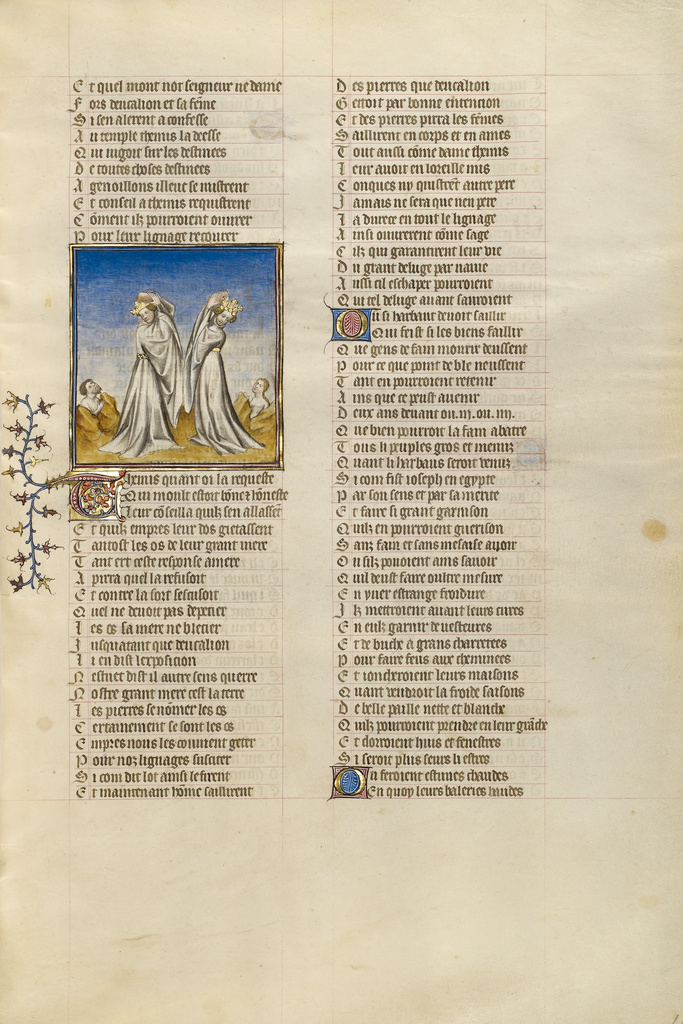 Et quel mont not seigneur ne dame
Fors deucalion et sa fēme
Si sen alerent a confesse
Au temple themis la deesse
Qui iugoit sur les destinees
De toutes choses destinees
A genoillons illeuc se mistrent
Et conseil a themis requistrent
Cōment ilz pourroient ouurer
Pour leur lignage recouurer
Themis quant oi la requeste
Qui moult estoit bōne et hōneste
Leur cōseilla quilz sen allassēt
Et quilz empres leur dos gietassent
Tantost les os de leur grant mere
Tant ert ceste response amere
A pirra quel la refusoit
Et contre la sort sescusoit
Quel ne deuoit pas depecier
Les os sa mere ne blecier
Jusqua tant que deucalion
Li en dist lexposicion
Nestuet dist il autre sens querre
Nostre grant mere cest la terre
Les pierres se nōmer les os
Certainement se sont les os
Empres nous les conuient geter
Pour noz lignages susciter
Si com dit lot ainsi le firent
Et maintenant hōme saillirent
Des pierres que deucalion
Gettoit par bonne entencion
Et des pierres pirra les fēmes
Saillirent en corps et en ames
Tout aussi cōme dame themis
Leur auoit en loreille mis
Conques ny quistrēt autre pere
Jamais ne sera que nen pere
La durte en tout le lignage
Ainsi ouurerent cōme sage
Cilz qui garantirent leur vie
Du grant deluge par nauie
Aussi cil eschaper pourroient
Qui tel deluge auant sauroient
Ou si harbaut deuoit saillir
Qui feist si les biens faillir
Que gens de fain mourir deussent
Pour ce que point de ble neussent
Tant en pourroient retenir
Ains que ce peust auenir
Deux ans deuant ou .iii. ou .iiii.
Que bien pourroit la fain abatre
Tous li peuples gros et menuz
Quant li harbaus seroit venuz
Si com fist ioseph en egypte
Par son sens et par sa merite
Et faire si grant garnison
Quilz en pourroient guerison
Sanz fain et sans mesaise auoir
Ou silz pouoient ains sauoir
Quil deust faire oultre mesure
En yuer estrange froidure
Ilz mettroient auant leurs cures
En eulz garnir de vesteures
Et de buche a grans charretees
Pour faire feus aux cheminees
Et ioncheroient leurs maisons
Quant vendroit la froide saisons
De belle paille nette et blanche
Quilz pourroient prendre en leur grāche
Et clorroient huis et fenestres
Si seroit plus seurs li estres
Ou feroient estuues chaudes
En quoy leurs baleries baudes